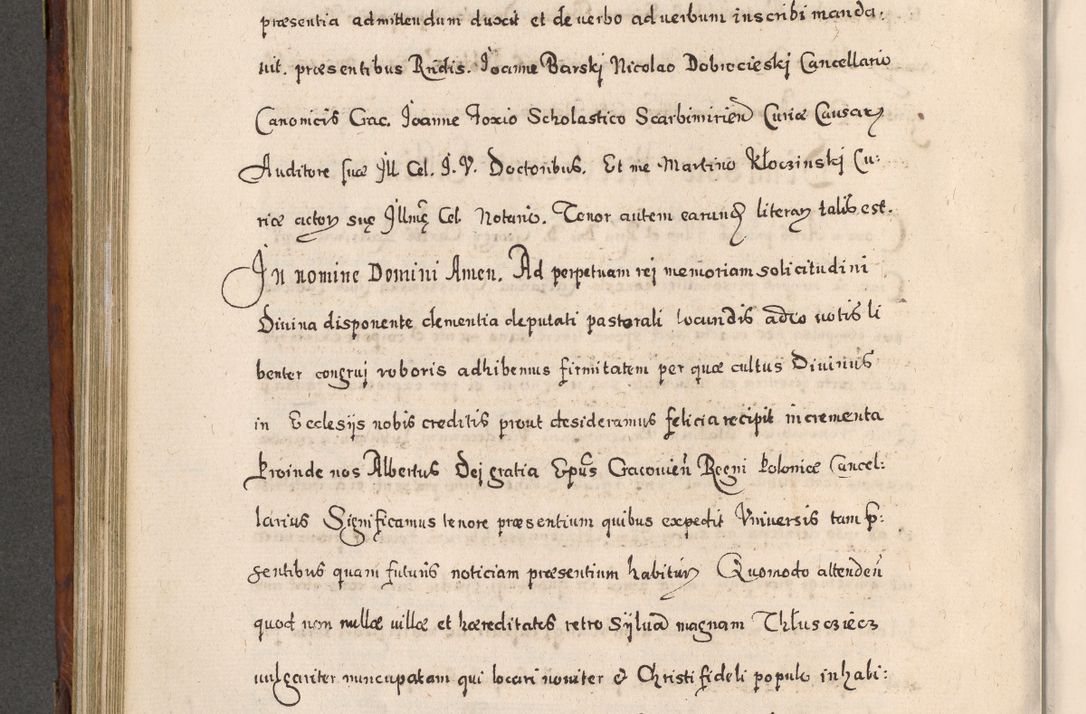 præsentia admittendum duxit et de verbo ad verbum inscribi manda:
uit. præsentibus Rndis. Joanne Barskj Nicolao Dobrocieskj Cancellario
Canonicis Crac. Joanne Foxio Scholastico Scarbimirien̄ Curiæ Causarꝝ
Auditore suæ Jll Cel. J. V. Doctoribus. Et me Martino Kłoczinskj Cu:
riæ actorꝝ suę Jllmę Cel Notario. Tenor autem earundꝫ literarꝝ talis est.
Jn nomine Domini Amen. Ad perpetuam rej memoriam solicitudini
Diuina disponente clementia deputati pastorali locundis adeo uotis li
benter congruj roboris adhibemus firmitatem per quæ cultus Diuinus
in Ecclesijs nobis creditis prout desideramus felicia recipit incrementa
Proinde nos Albertus Dej gratia Ep̄us Cracouien̄ Regni Poloniæ Cancel:
larius Significamus tenore præsentium quibus expedit Vniuersis tam p̄:
sentibus quam futuris noticiam præsentium habiturꝝ Quomodo attenden̄
quod non nullæ uillæ et hæreditates retro Sijluã magnam Thłusczięcz
uulgariter nuncupatam qui locari nouiter & Christi fideli populo inhabi: